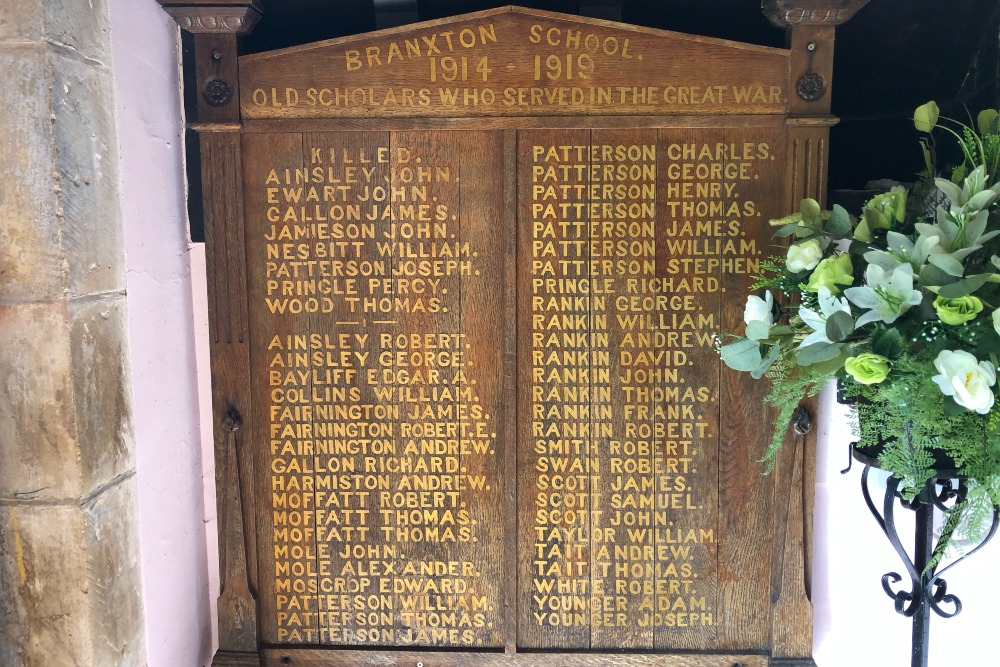 BRANXTON SCHOOL.
1914 - 1919
OLD SCHOLARS WHO SERVED IN THE GREAT WAR
KILLED.
AINSLEY JOHN.
EWART JOHN.
GALLON JAMES.
JAMIESON JOHN.
NESBITT WILLIAM.
PATTERSON JOSEPH.
PRINGLE PERCY.
WOOD THOMAS.
AINSLEY ROBERT.
AINSLEY GEORGE.
BAYLIFF EDGAR. A.
COLLINS WILLIAM.
FAIRNINGTON JAMES.
FAIRNINGTON ROBERT. E.
FAIRNINGTON ANDREW.
GALLON RICHARD.
HARMISTON ANDREW.
MOFFATT ROBERT.
MOFFATT THOMAS.
MOFFATT THOMAS.
MOLE JOHN.
MOLE ALEXANDER.
MOSCROP EDWARD.
PATTERSON WILLIAM.
PATTERSON THOMAS.
PATTERSON JAMES.
PATTERSON CHARLES.
PATTERSON GEORGE.
PATTERSON HENRY.
PATTERSON THOMAS.
PATTERSON JAMES.
PATTERSON WILLIAM.
PATTERSON STEPHEN.
PRINGLE RICHARD.
RANKIN GEORGE.
RANKIN WILLIAM.
RANKIN ANDREW.
RANKIN DAVID.
RANKIN JOHN.
RANKIN THOMAS.
RANKIN FRANK.
RANKIN ROBERT.
SMITH ROBERT.
SWAN ROBERT.
SCOTT JAMES.
SCOTT SAMUEL.
SCOTT JOHN.
TAYLOR WILLIAM.
TAIT ANDREW.
TAIT THOMAS.
WHITE ROBERT.
YOUNGER ADAM.
YOUNGER JOSEPH.